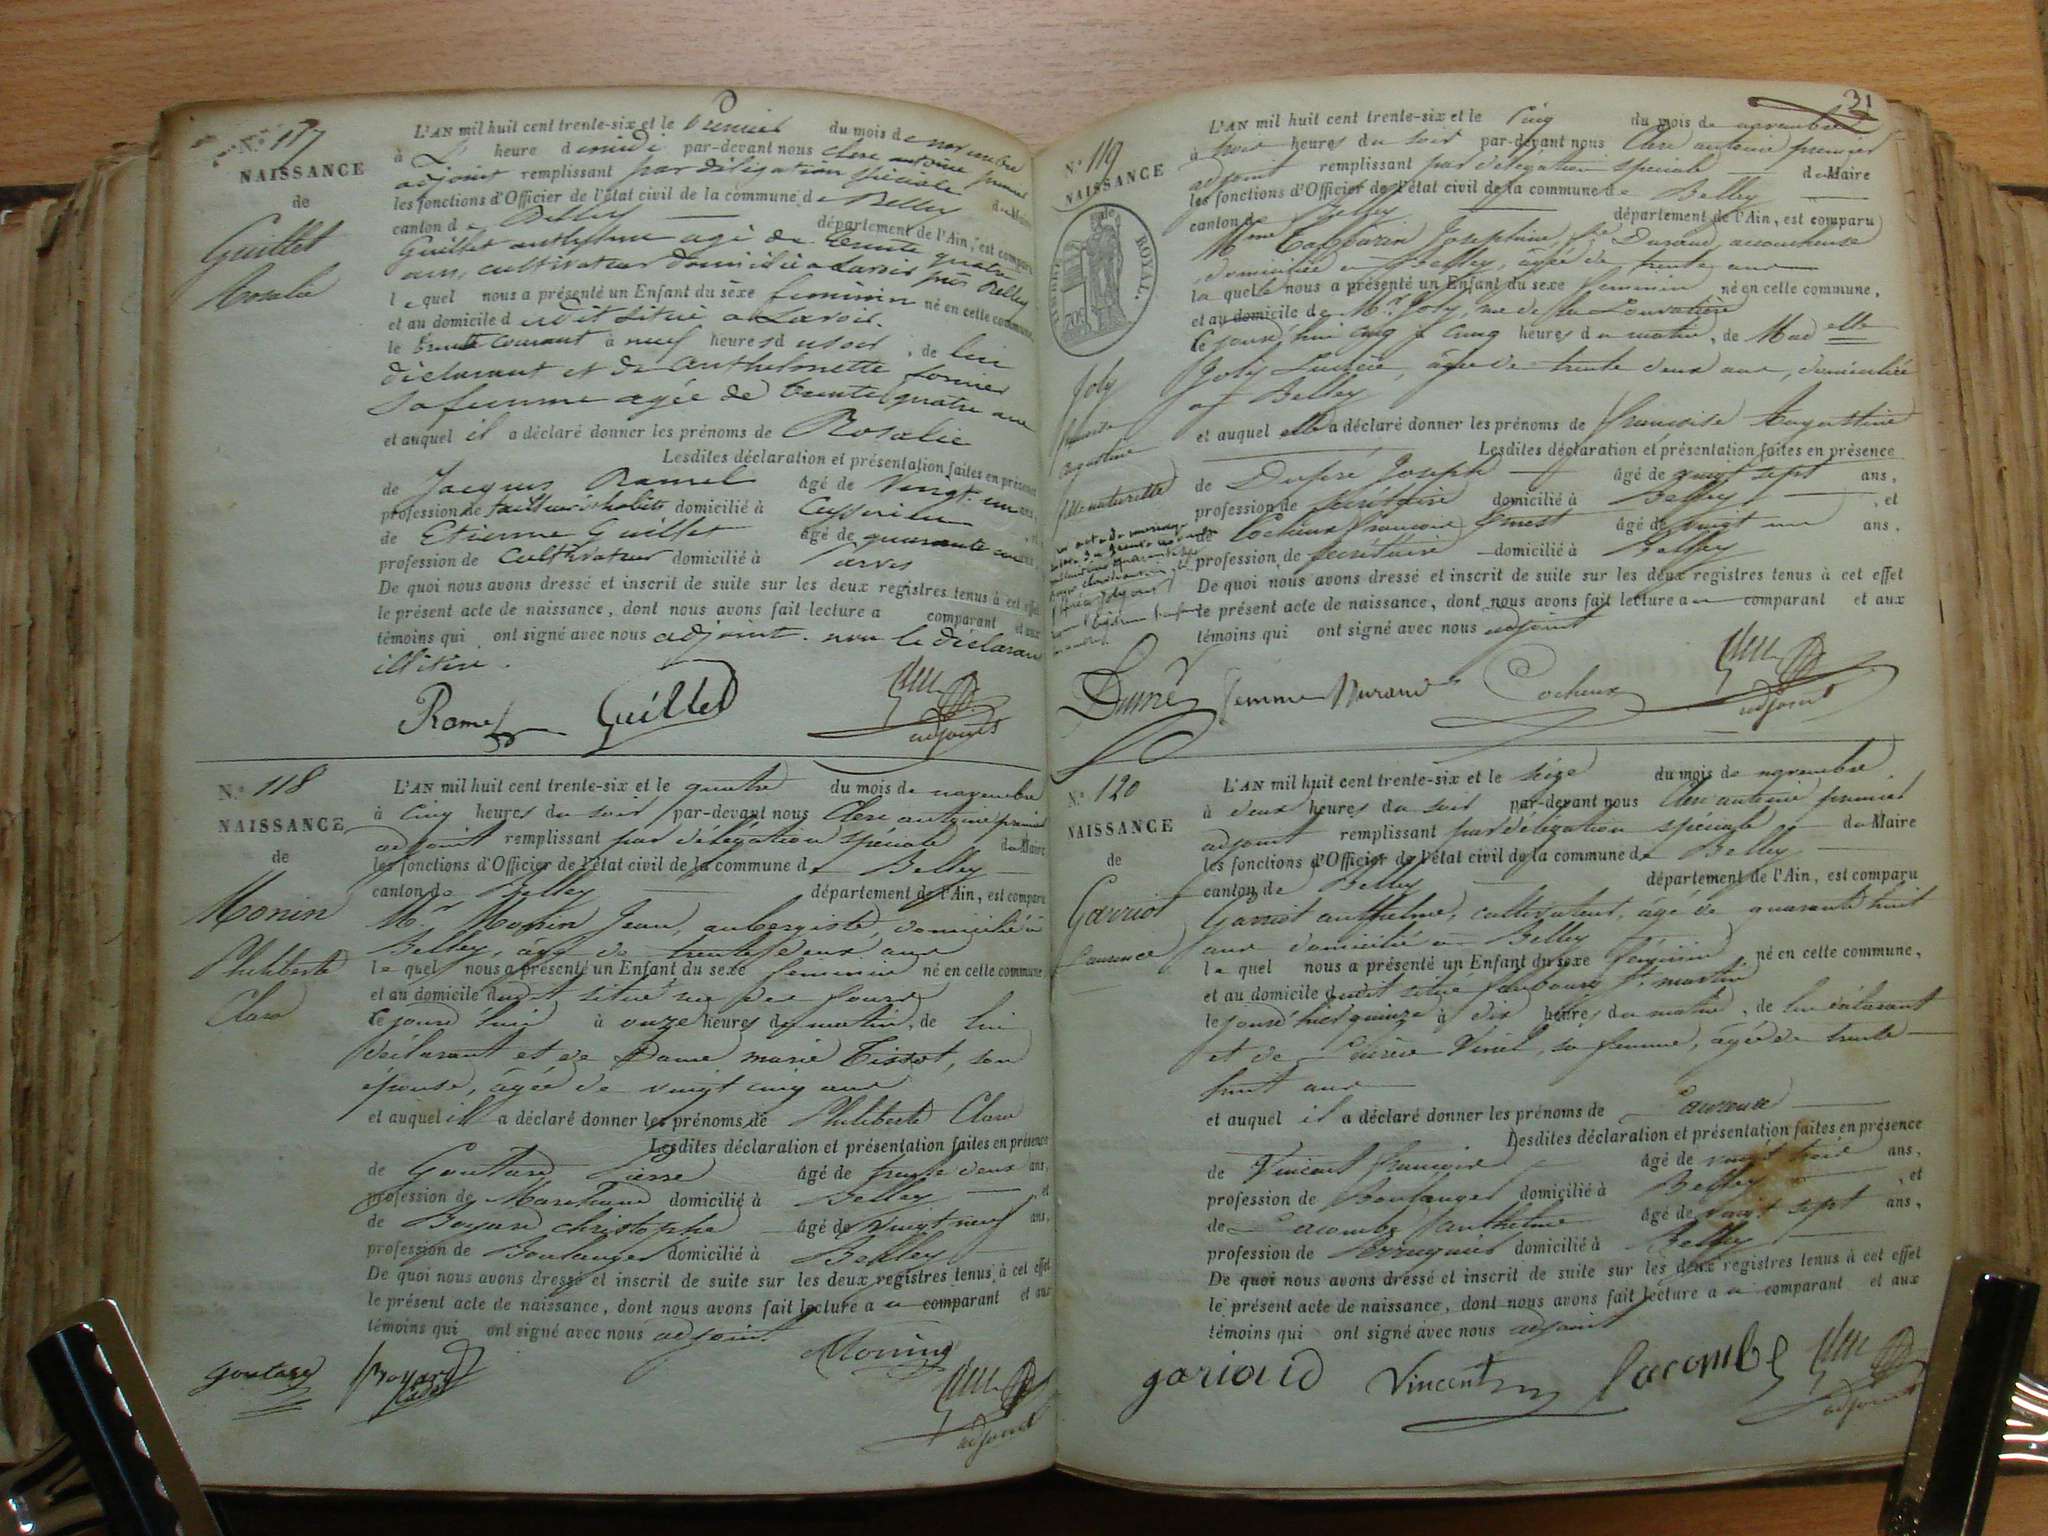 N.º 117
NAISSANCE
de
Guillet
Rosalie
L'AN mil huit cent trente-six et le Premier du mois de novembre
à heure de midi par-devant nous Clerc antoine premier
adjoint remplissant par délégation spéciale du Maire
les fonctions d'Officier de l'état civil de la commune de Belley
canton de Belley département de l'Ain, est comparu
Guillet anthelme agé de trente quatre
ans, cultivateur domicilié à près Belley
lequel nous a présenté un Enfant du sexe feminin né en cette commune,
et au domicile d situé a
le courant à neuf heures du soir, de lui
déclarant et de anthelmette
sa femme agée de trente quatre ans
et auquel il a déclaré donner les prénoms de Rosalie
Lesdites déclaration et présentation faites en présence
de Jacques Ramel âgé de Vingt un ans,
profession de tailleur d'habits domicilié à
de Etienne Guillet âgé de quarante ans,
profession de Cultivateur domicilié à
De quoi nous avons dressé et inscrit de suite sur les deux registres tenus à cet effet
le présent acte de naissance, dont nous avons fait lecture a comparant et aux
témoins qui ont signé avec nous adjoint. non le déclarant
illitéré.
Ramel Guillet adjoint
N.º 118
NAISSANCE
de
Monin
Philiberte
Clara
L'AN mil huit cent trente-six et le quatre du mois de novembre
à Cinq heures du soir par-devant nous Clerc antoine premier
adjoint remplissant par délégation spéciale du Maire
les fonctions d'Officier de l'état civil de la commune de Belley
canton de Belley département de l'Ain, est comparu
Mr Monin Jean, aubergiste, domicilié à
Belley, âgé de trente deux ans
lequel nous a présenté un Enfant du sexe feminin né en cette commune
et au domicile dudit situé rue des fours
ce jourd'hui à onze heures du matin, de lui
déclarant et de Dame marie Tissot, son
épouse, âgée de vingt cinq ans
et auquel il a déclaré donner les prénoms de Philiberte Clara
Lesdites déclaration et présentation faites en présence
de Goutard Pierre âgé de trente deux ans,
profession de Marchand domicilié à Belley et
de Boyard christophe âgé de vingt neuf ans,
profession de Boulanger domicilié à Belley
De quoi nous avons dressé et inscrit de suite sur les deux registres tenus à cet effet
le présent acte de naissance, dont nous avons fait lecture a u comparant et aux
témoins qui ont signé avec nous adjoint
goutard Boyard Monin adjoint
31
N.º 119
NAISSANCE
TIMBRE ROYAL.
Joly
françoise
augustine
fille naturelle
L'AN mil huit cent trente-six et le Cinq du mois de novembre
à trois heures du soir par-devant nous Clerc antoine premier
adjoint remplissant par délégation spéciale du Maire
les fonctions d'Officier de l'état civil de la commune de Belley
canton de Belley département de l'Ain, est comparu
Mme Josephine fe Durand, accoucheuse
domiciliée à Belley, âgée de trente ans
laquelle nous a présenté un Enfant du sexe feminin né en cette commune,
et au domicile de Mr Joly, rue de la Louvatière
ce jourd'hui cinq à cinq heures du matin, de Mad elle
Joly Lucrèce, âgée de trente deux ans, domiciliée
à Belley
et auquel elle a déclaré donner les prénoms de françoise Augustine
Lesdites déclaration et présentation faites en présence
de Dupré Joseph âgé de vingt sept ans,
profession de secrétaire domicilié à Belley, et
de Cocheux françois Ernest âgé de vingt un ans,
profession de secrétaire domicilié à Belley
De quoi nous avons dressé et inscrit de suite sur les deux registres tenus à cet effet
le présent acte de naissance, dont nous avons fait lecture a comparant et aux
témoins qui ont signé avec nous adjoint
Dupré femme Durand Cocheux adjoint
N.º 120
NAISSANCE
de
Gavriot
Laurence
L'AN mil huit cent trente-six et le seize du mois de novembre
à deux heures du soir par-devant nous Clerc antoine premier
adjoint remplissant par délégation spéciale du Maire
les fonctions d'Officier de l'état civil de la commune de Belley
canton de Belley département de l'Ain, est comparu
anthelme, cultivateur, âgé de quarante huit
ans domicilié à Belley
lequel nous a présenté un Enfant du sexe féminin né en cette commune,
et au domicile dudit situé faubourg St martin
le jourd'hier quinze à dix heures du matin, de lui déclarant
et de Vinel, sa femme, âgée de trente
huit ans
et auquel il a déclaré donner les prénoms de Laurence
Lesdites déclaration et présentation faites en présence
de Vincent françois âgé de vingt trois ans,
profession de Boulanger domicilié à Belley, et
de Lacombe anthelme âgé de vingt sept ans,
profession de Perruquier domicilié à Belley
De quoi nous avons dressé et inscrit de suite sur les deux registres tenus à cet effet
le présent acte de naissance, dont nous avons fait lecture a u comparant et aux
témoins qui ont signé avec nous adjoint
gariaud Vincent Lacombe adjoint